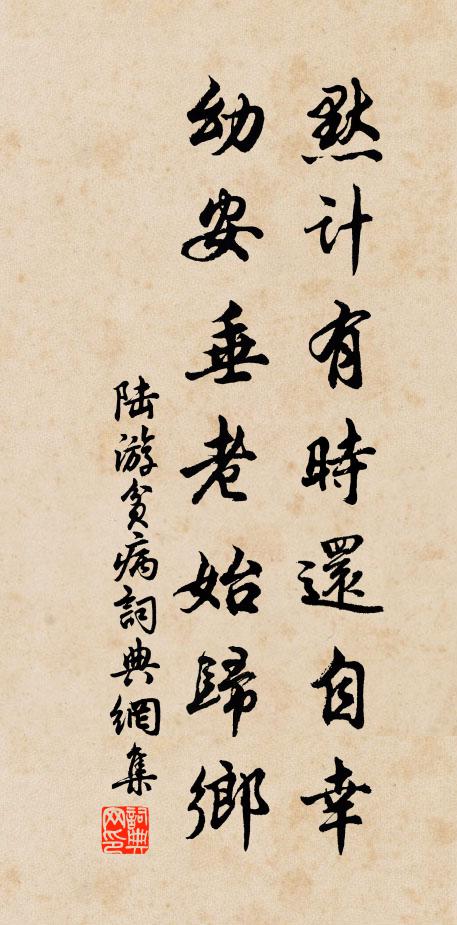 默計有時還自幸
幼安垂老始歸鄉
陸游貧病詞典網集
詞典網印